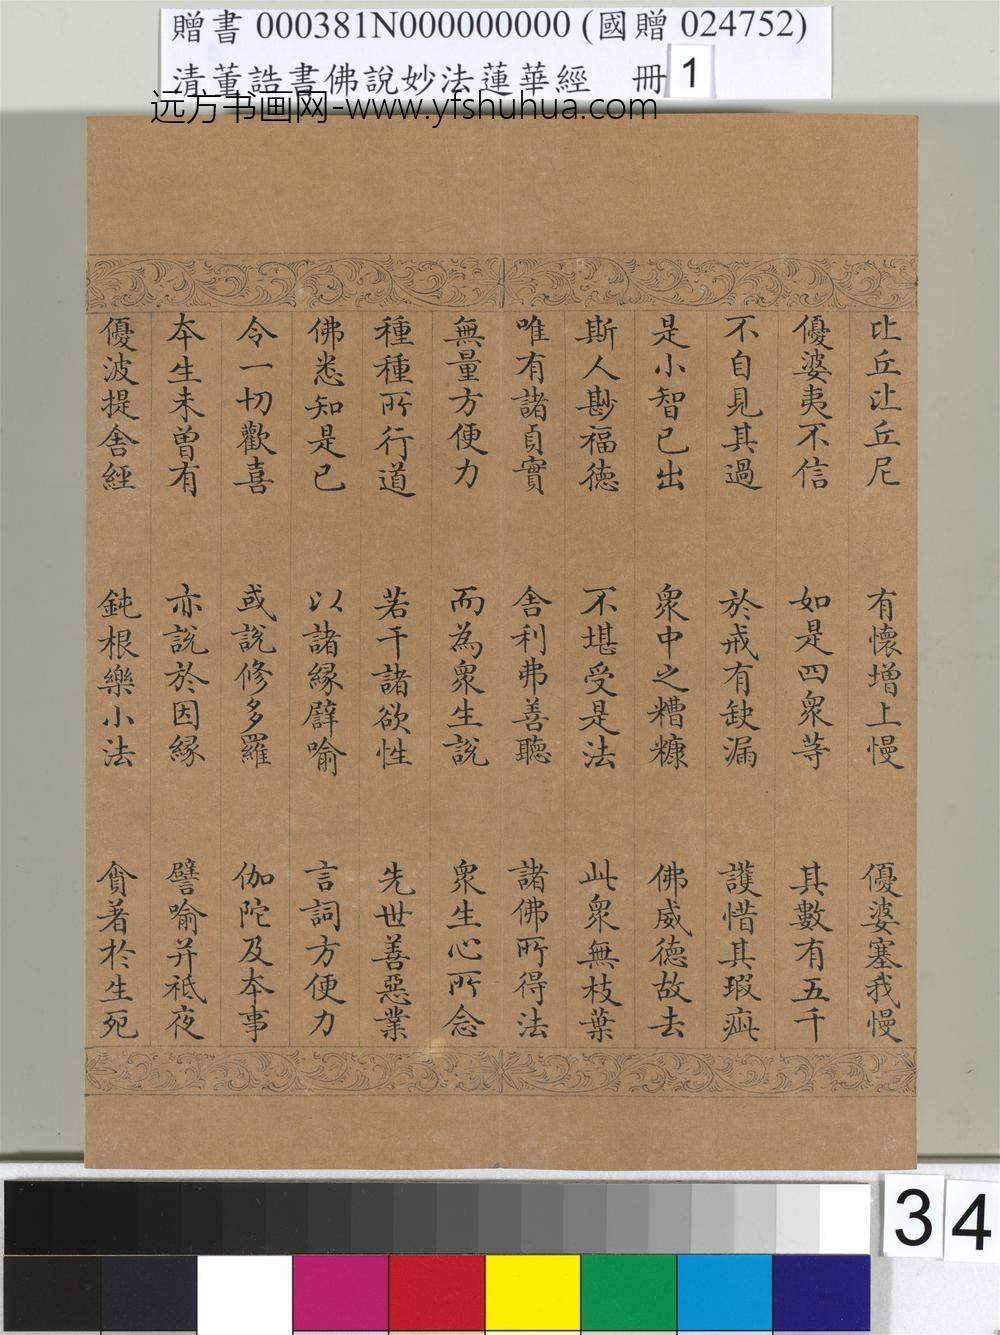 贈書 000381N000000000 (國贈 024752)
清董誥書佛說妙法蓮華經 冊 1
远方书画网-www.yfshuhua.com
比丘比丘尼 有懷增上慢 優婆塞我慢
優婆夷不信 如是四眾等 其數有五千
不自見其過 於戒有缺漏 護惜其瑕疵
是小智已出 眾中之糟糠 佛威德故去
斯人尠福德 不堪受是法 此眾無枝葉
唯有諸貞實 舍利弗善聽 諸佛所得法
無量方便力 而為眾生說 眾生心所念
種種所行道 若干諸欲性 先世善惡業
佛悉知是已 以諸緣譬喻 言詞方便力
令一切歡喜 或說修多羅 伽陀及本事
本生未曾有 亦說於因緣 譬喻并祇夜
優波提舍經 鈍根樂小法 貪著於生死
34